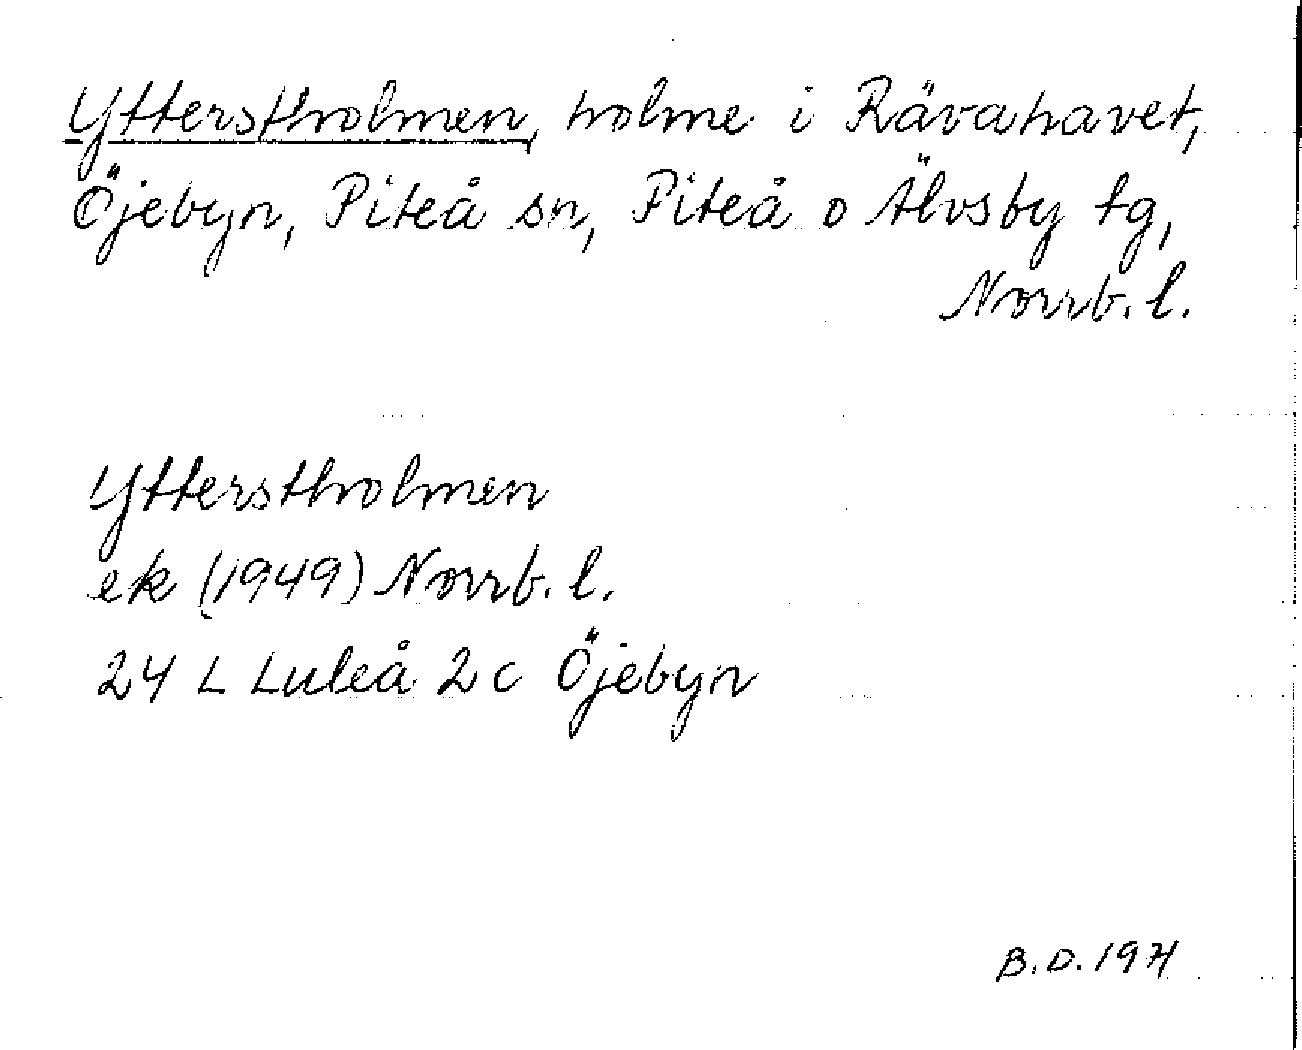 Ytterstholmen, holme i Rävahavet,
Öjebyn, Piteå sn, Piteå o Älvsby tg,
Norrb. l.
Ytterstholmen
ek (1949) Norrb. l.
24 L Luleå 2 c Öjebyn
B.D. 1971